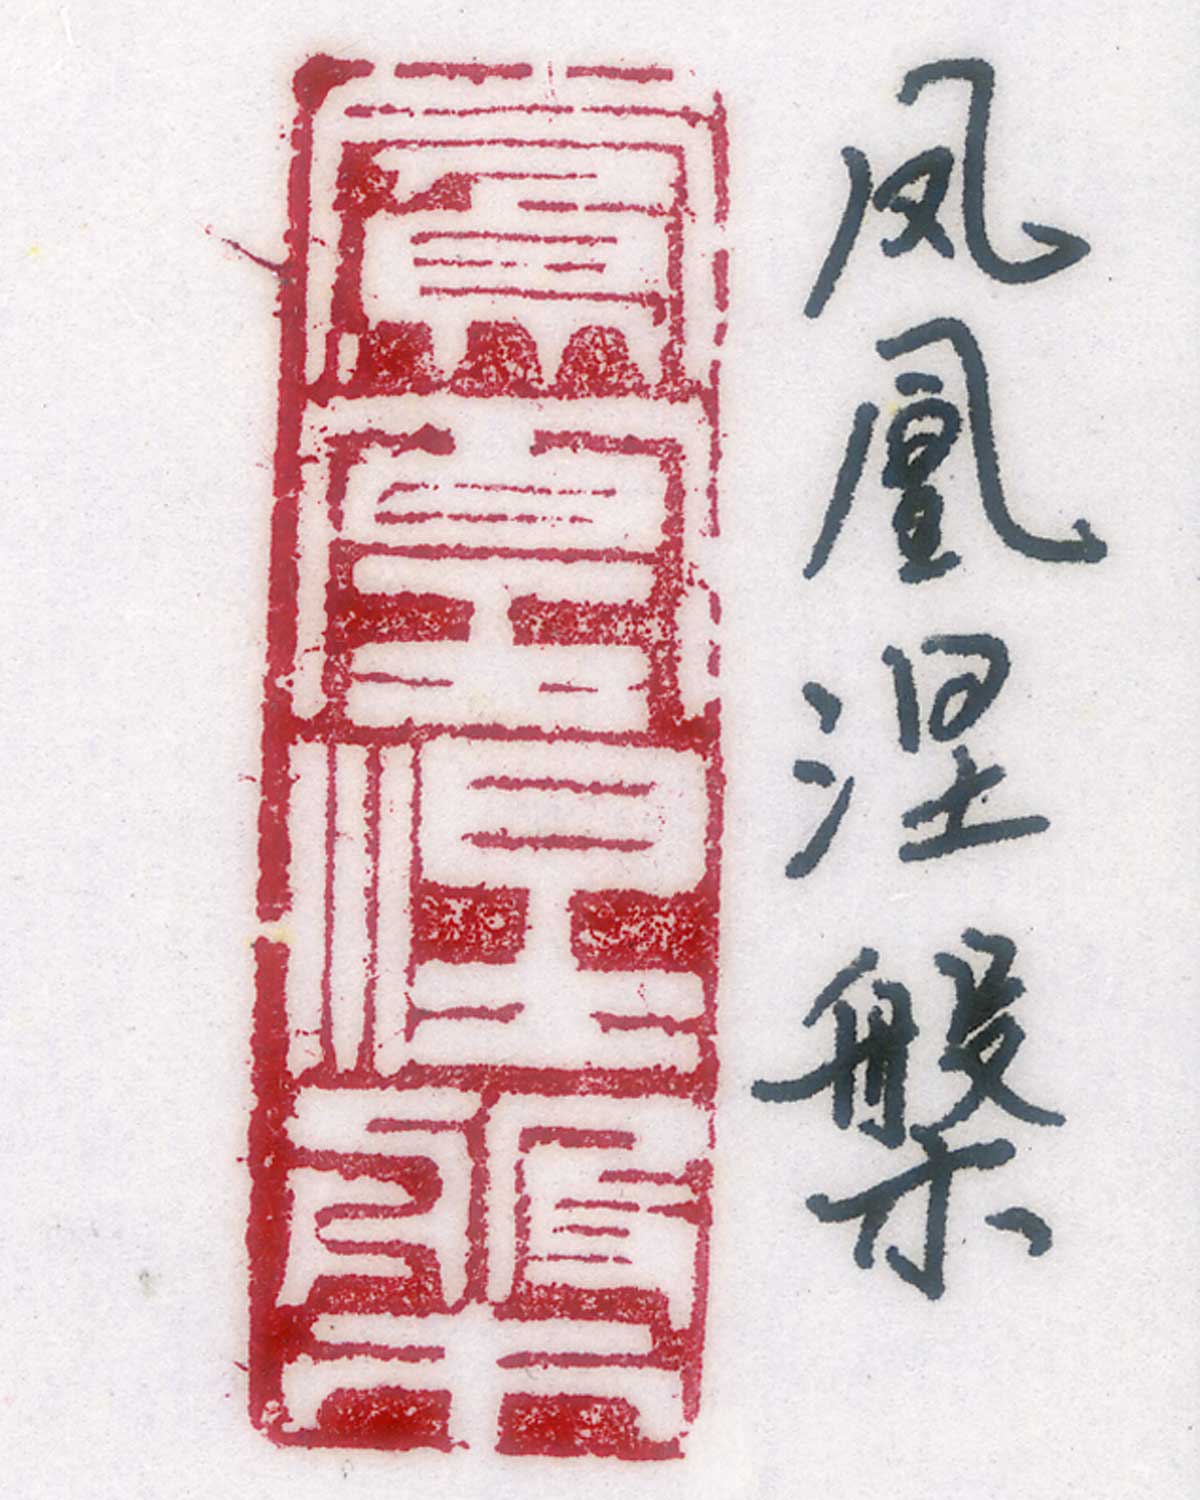 凤凰涅槃
鳳凰涅槃